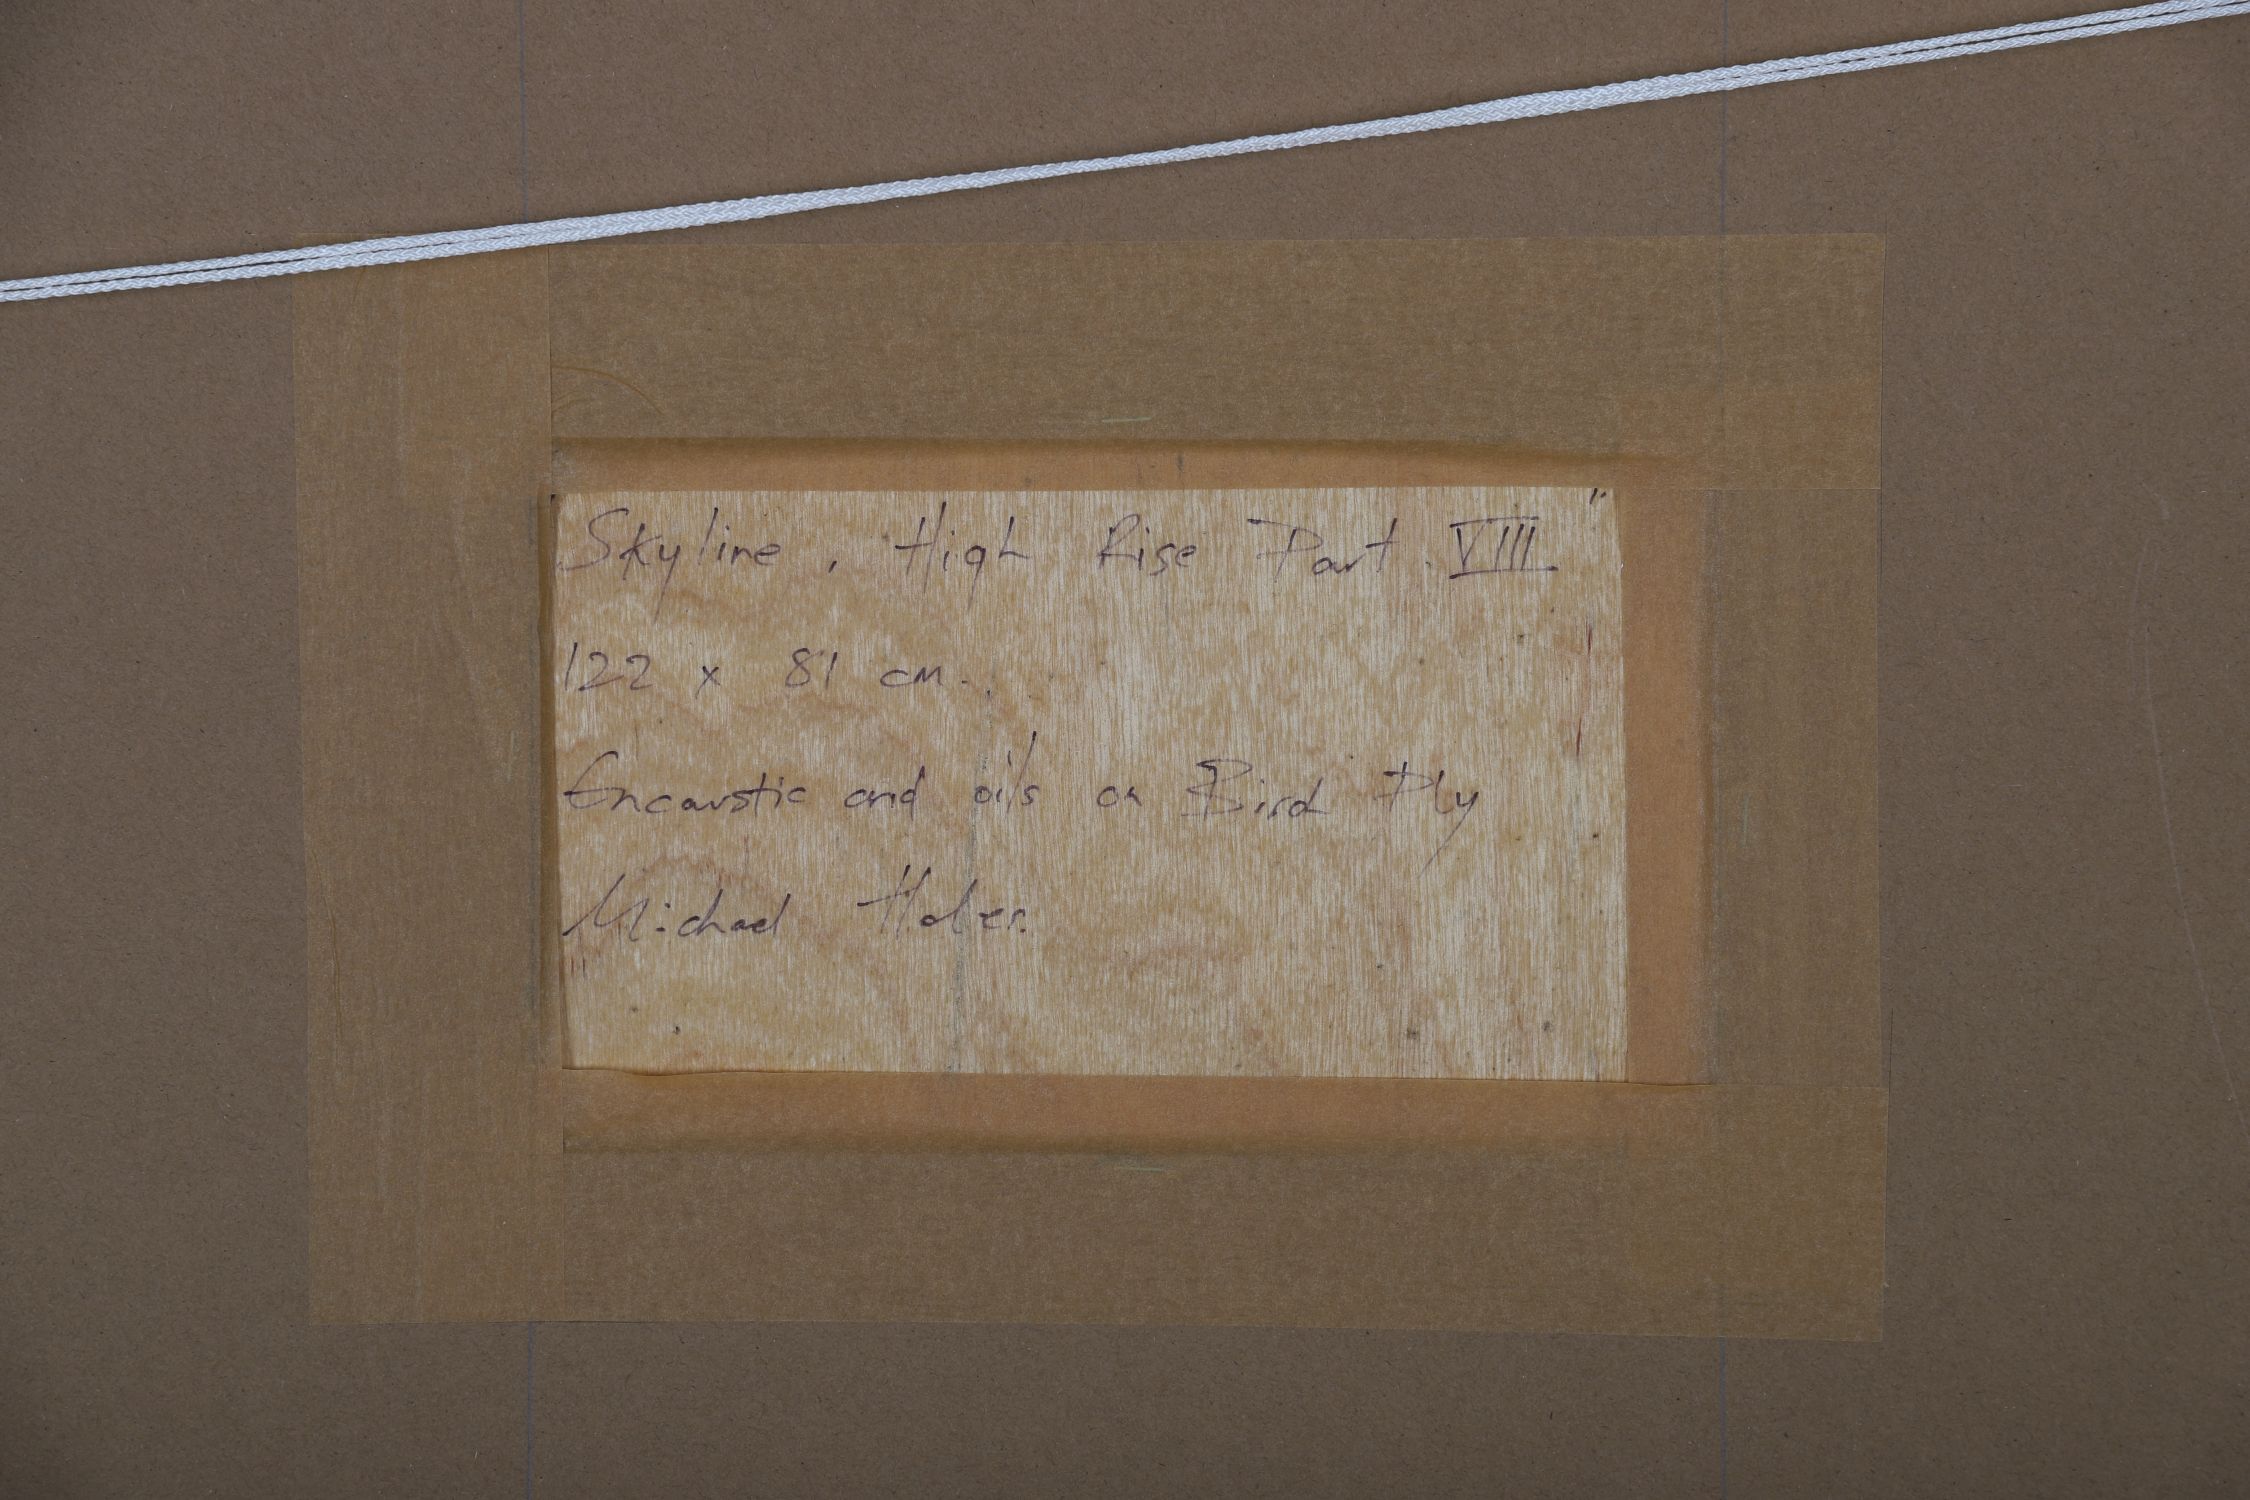 Skyline, High Rise Part VIII"
122 x 81 cm.
Encaustic and oils on Bird Ply
Michael